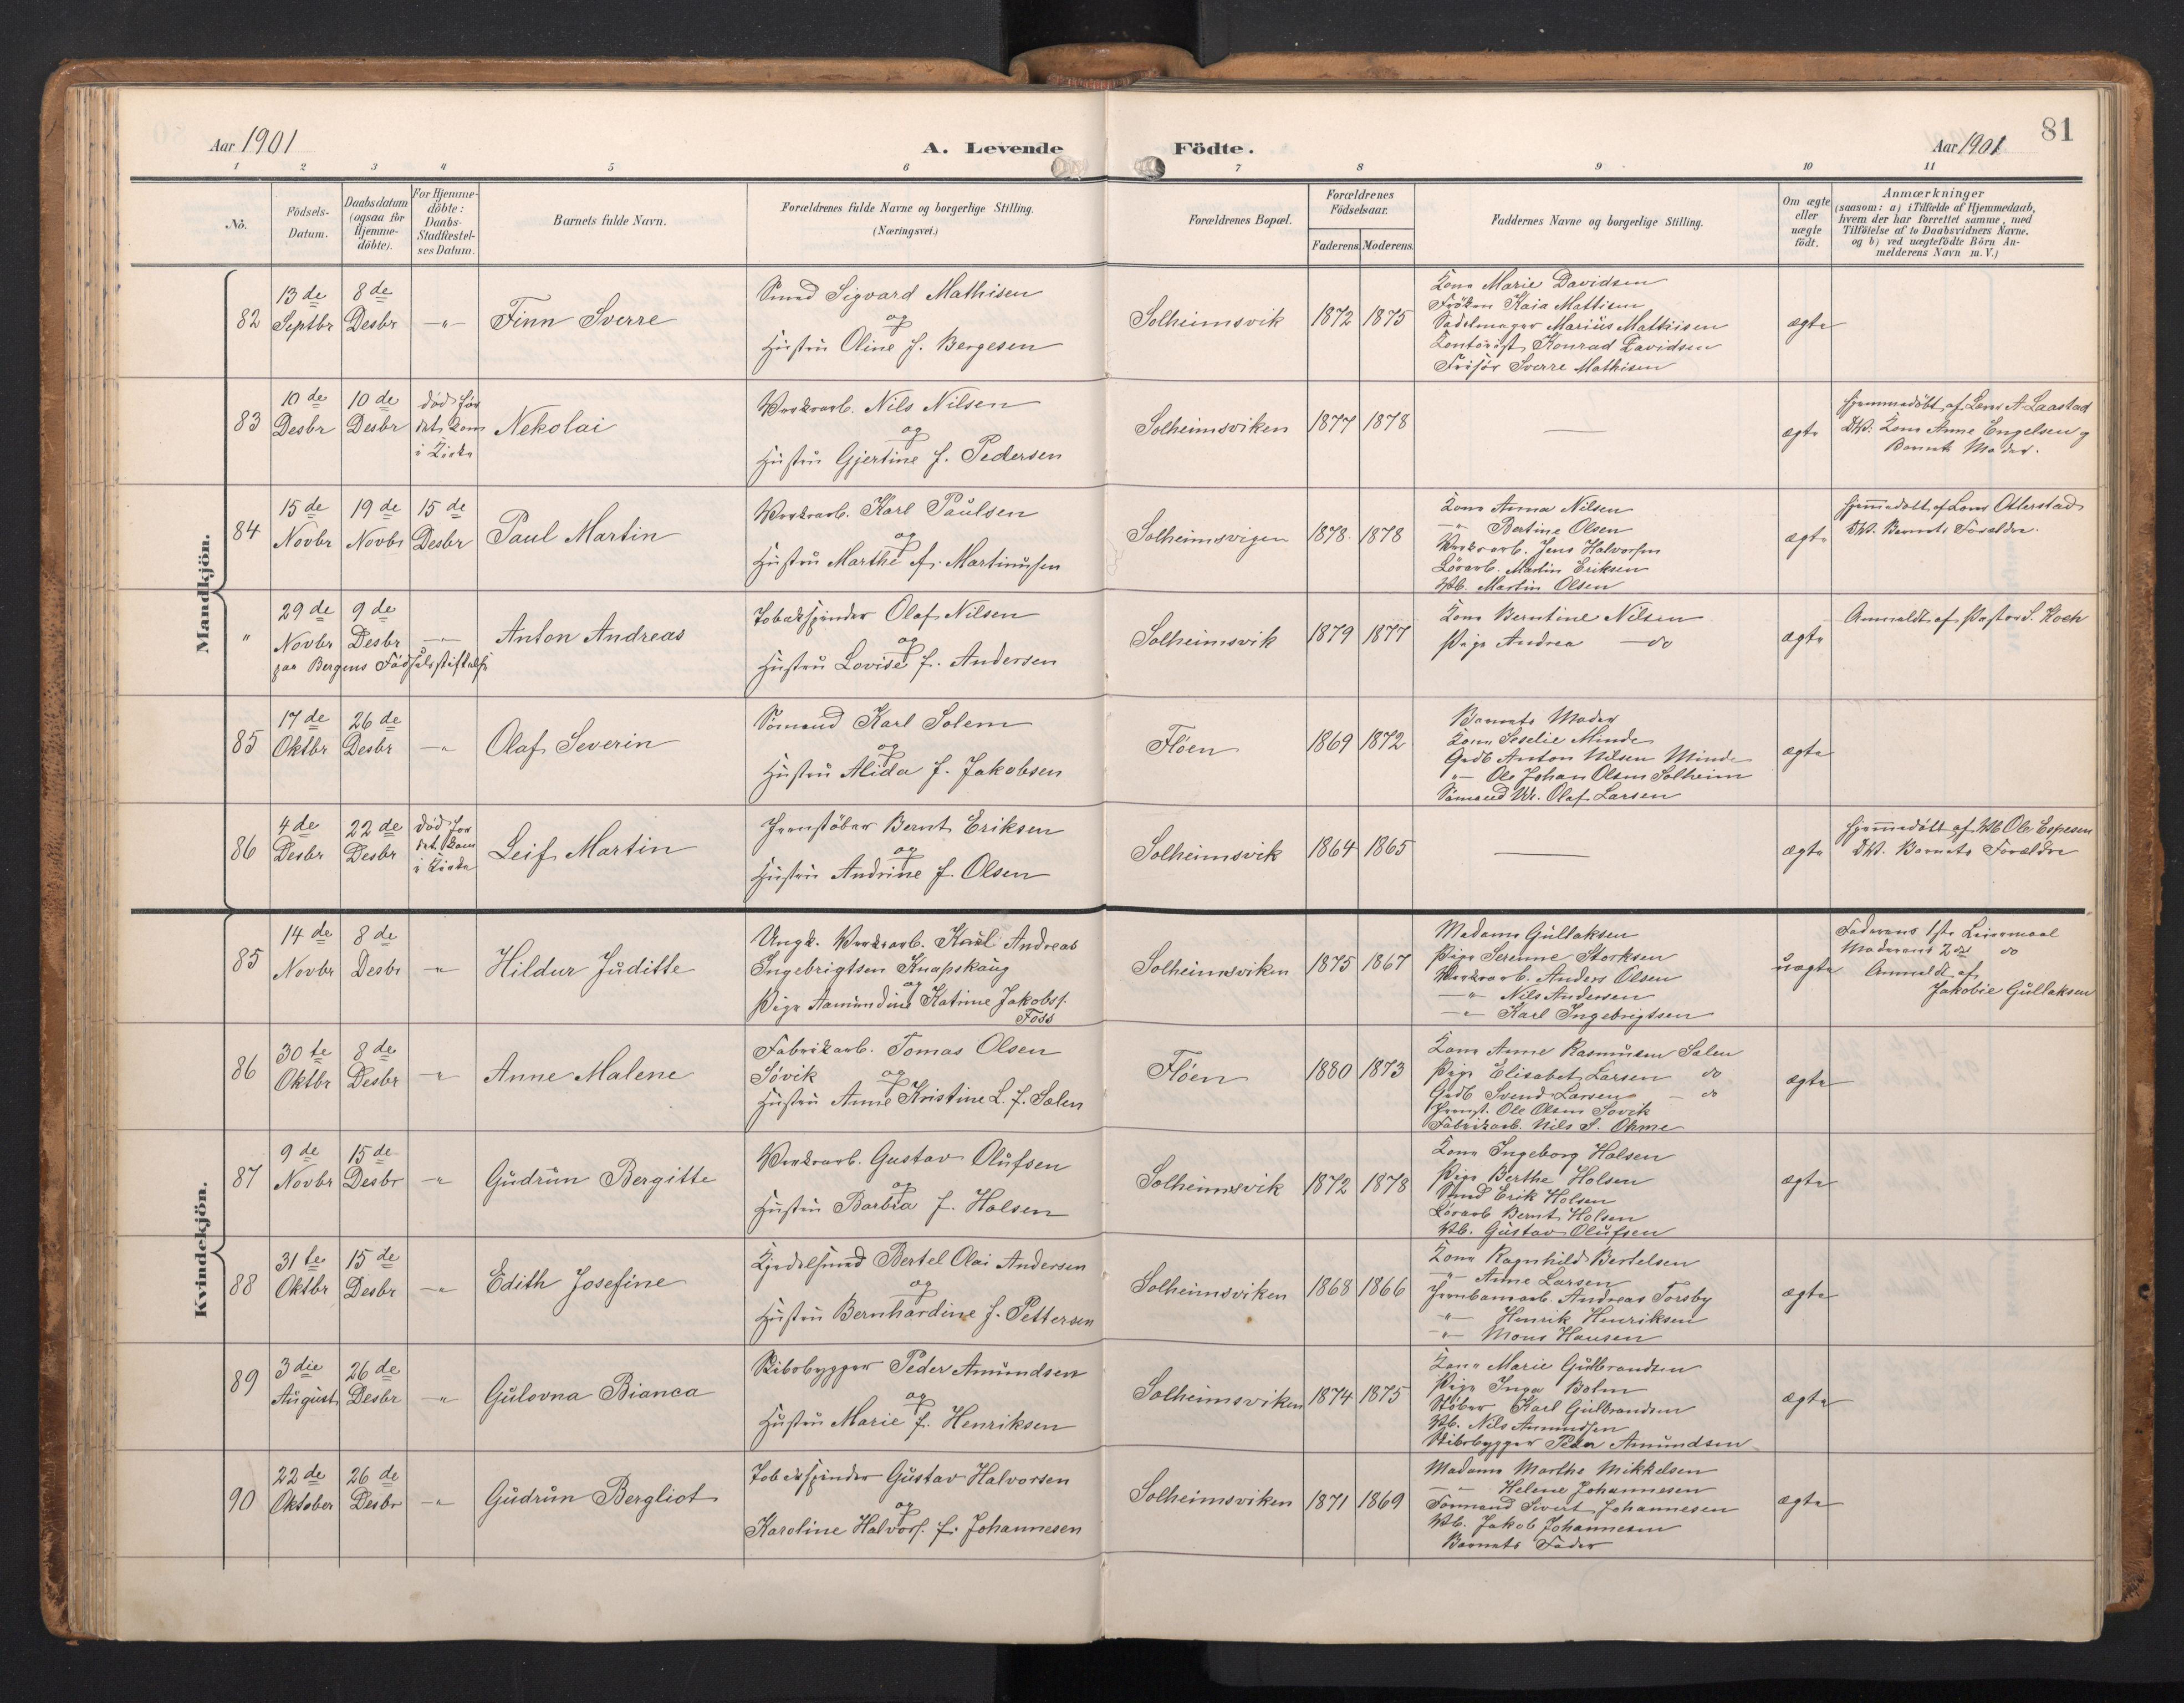 Aar 1901
A. Levende Födte.
Aar 1901
81
1 2 3 4 5 6 7 8 9 10 11
No.
Födsels-Datum.
Daabsdatum (ogsaa for Hjemme-döbte).
For Hjemme-döbte: Daabs-Stadfæstel-ses Datum.
Barnets fulde Navn.
Forældrenes fulde Navne og borgerlige Stilling.
(Næringsvei.)
Forældrenes Bopæl.
Forældrenes Födselsaar.
Faderens. Moderens.
Faddernes Navne og borgerlige Stilling.
Om ægte eller uægte födt.
Anmærkninger
(saasom: a) i Tilfælde af Hjemmedaab,
hvem der har forrettet samme, med
Tilföielse af to Daabsvidners Navne.
og b) ved uægtefödte Börn An-
melderens Navn m. V.)
Mandkjön.
82 13de Septbr 8de Desbr —"— Finn Sverre
Smed Sigvard Mathisen
og
Hustru Oline f. Bergesen
Solheimsvik 1872 1875
Kone Marie Davidsen
Fröken Kaia Mathisen
Sadelmager Marius Mathiisen
Kontorist Konrad Davidsen
Frisör Sverre Mathisen
ægte
83 10de Desbr 10de Desbr död før det kom i Kirke Nekolai
Verksarb. Nils Nilsen
og
Hustru Gjertine f. Pedersen
Solheimsviken 1877 1878
—
ægte
Hjemmedöbt af Lens A. Laastad
DV: Kone Anne Engelsen og
Barnets Moder.
84 15de Novbr 19de Novbr 15de Desbr Paul Martin
Verksarb. Karl Paulsen
og
Hustru Marthe f. Martinussen
Solheimsvigen 1878 1878
Kone Anna Nilsen
—"— Bertine Olsen
Verksarb. Jens Halvorsen
Lösarb. Martin Eriksen
Vb. Martin Olsen
ægte
Hjemmedöbt af Lens Otterstad
DV. Barnets Forældre.
" 29de Novbr 9de Desbr —"— Anton Andreas
paa Bergens Födselsstiftelse
Tobakspinder Olaf Nilsen
og
Hustru Lovise f. Andersen
Solheimsvik 1879 1877
Kone Berntine Nilsen
Pige Andrea — do
ægte
Anmeldt af Pastor S. Koch
85 17de Oktbr 26de Desbr —"— Olaf Severin
Sömand Karl Solem
og
Hustru Alida f. Jakobsen
Flöen 1869 1872
Barnets Moder
Kone Seselie Minde
Grdb Anton Nilsen Minde
"— Ole Johan Olsen Solheim
Sömand Olaf Larsen
ægte
86 4de Desbr 22de Desbr död for det kom i Kirke Leif Martin
Jernstöber Bernt Eriksen
og
Hustru Andrine f. Olsen
Solheimsvik 1864 1865
—
ægte
Hjemmedöbt af Vb Ole Espesen
DV. Barnets Forældre
Kvindekjön.
85 14de Novbr 8de Desbr —"— Hildur Juditte
Ungk. Verksarb. Karl Andreas
Ingebrigtsen Knapskaug
og
Pige Aamundine Katrine Jakobsf.
Foss
Solheimsviken 1875 1867
Madame Gullaksen
Pige Serenne Storksen
Verksarb. Anders Olsen
—"— Nils Andersen
—"— Karl Ingebrigtsen
uægte
Faderens 1ste Leiermaal
Moderens 2det do
Anmeldt af
Jakobie Gullaksen
86 30te Oktbr 8de Desbr —"— Anne Malene
Fabrikarb. Tomas Olsen
Sövik og
Hustru Anne Kristine L. f. Sælen
Flöen 1880 1873
Kone Anne Rasmusen Sælen
Pige Elisabet Larsen do
Grdb Svend Larsen — do
Jernst. Ole Olsen Sövik
Fabrikarb. Nils S. Ohme
ægte
87 9de Novbr 15de Desbr —"— Gudrun Bergitte
Verksarb. Gustav Olufsen
og
Hustru Barbra f. Holsen
Solheimsvik 1872 1878
Kone Ingeborg Holsen
Pige Berthe Holsen
Smed Erik Holsen
Lösarb Bernt Holsen
Vb. Gustav Olufsen
ægte
88 31te Oktbr 15de Desbr —"— Edith Josefine
Kjedelsmed Bertel Olai Andersen
og
Hustru Bernhardine f. Pettersen
Solheimsviken 1868 1866
Kone Ragnhild Bertelsen
—"— Anne Larsen
Jernbanarb. Andreas Torsby
—"— Henrik Henriksen
—"— Mons Hansen
ægte
89 3die August 26de Desbr —"— Gulovna Bianca
Skibsbygger Peder Amundsen
og
Hustru Marie f. Henriksen
Solheimsviken 1874 1875
Kone Marie Gulbrandsen
Pige Inga Holm
Stöber Karl Gulbrandsen
Vb. Nils Amundsen
Skibsbygger Peder Amundsen
ægte
90 22de Oktober 26de Desbr —"— Gudrun Bergliot
Tobakspinder Gustav Halvorsen
og
Karoline Halvors. f. Johannesen
Solheimsviken 1871 1869
Madame Marthe Mikkelsen
—"— Helene Johannesen
Formand Sivert Johannesen
Vb. Jakob Johannesen
Barnets Fader
ægte